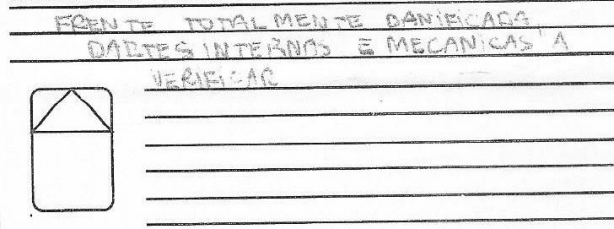 FRENTE TOTALMENTE DANIFICADA
PARTES INTERNAS E MECANICAS A
VERIFICAR